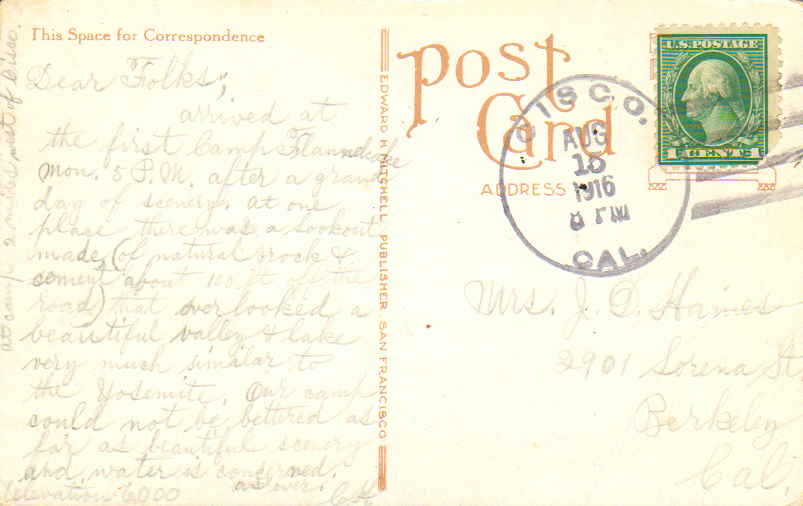 This Space for Correspondence
Dear Folks;
arrived at
the first Camp Flannelcake
Mon. 5 P.M. after a grand
day of scenery. at one
place there was a lookout
made (of natural rock &
cement about 100 ft off the
road) that overlooked a
beautiful valley & lake
very much similar to
the Yosemite. Our camp
could not be bettered as
far as beautiful scenery
and water is concerned.
elevation 6000
as over.
at camp 2 miles west of Cisco.
EDWARD H. MITCHELL PUBLISHER SAN FRANCISCO
Post
Card
ADDRESS
U.S. POSTAGE
CISCO.
AUG
1916
8 PM
CAL.
Mrs. J. D. Haines
2901 Lorena St.
Berkeley
Cal.